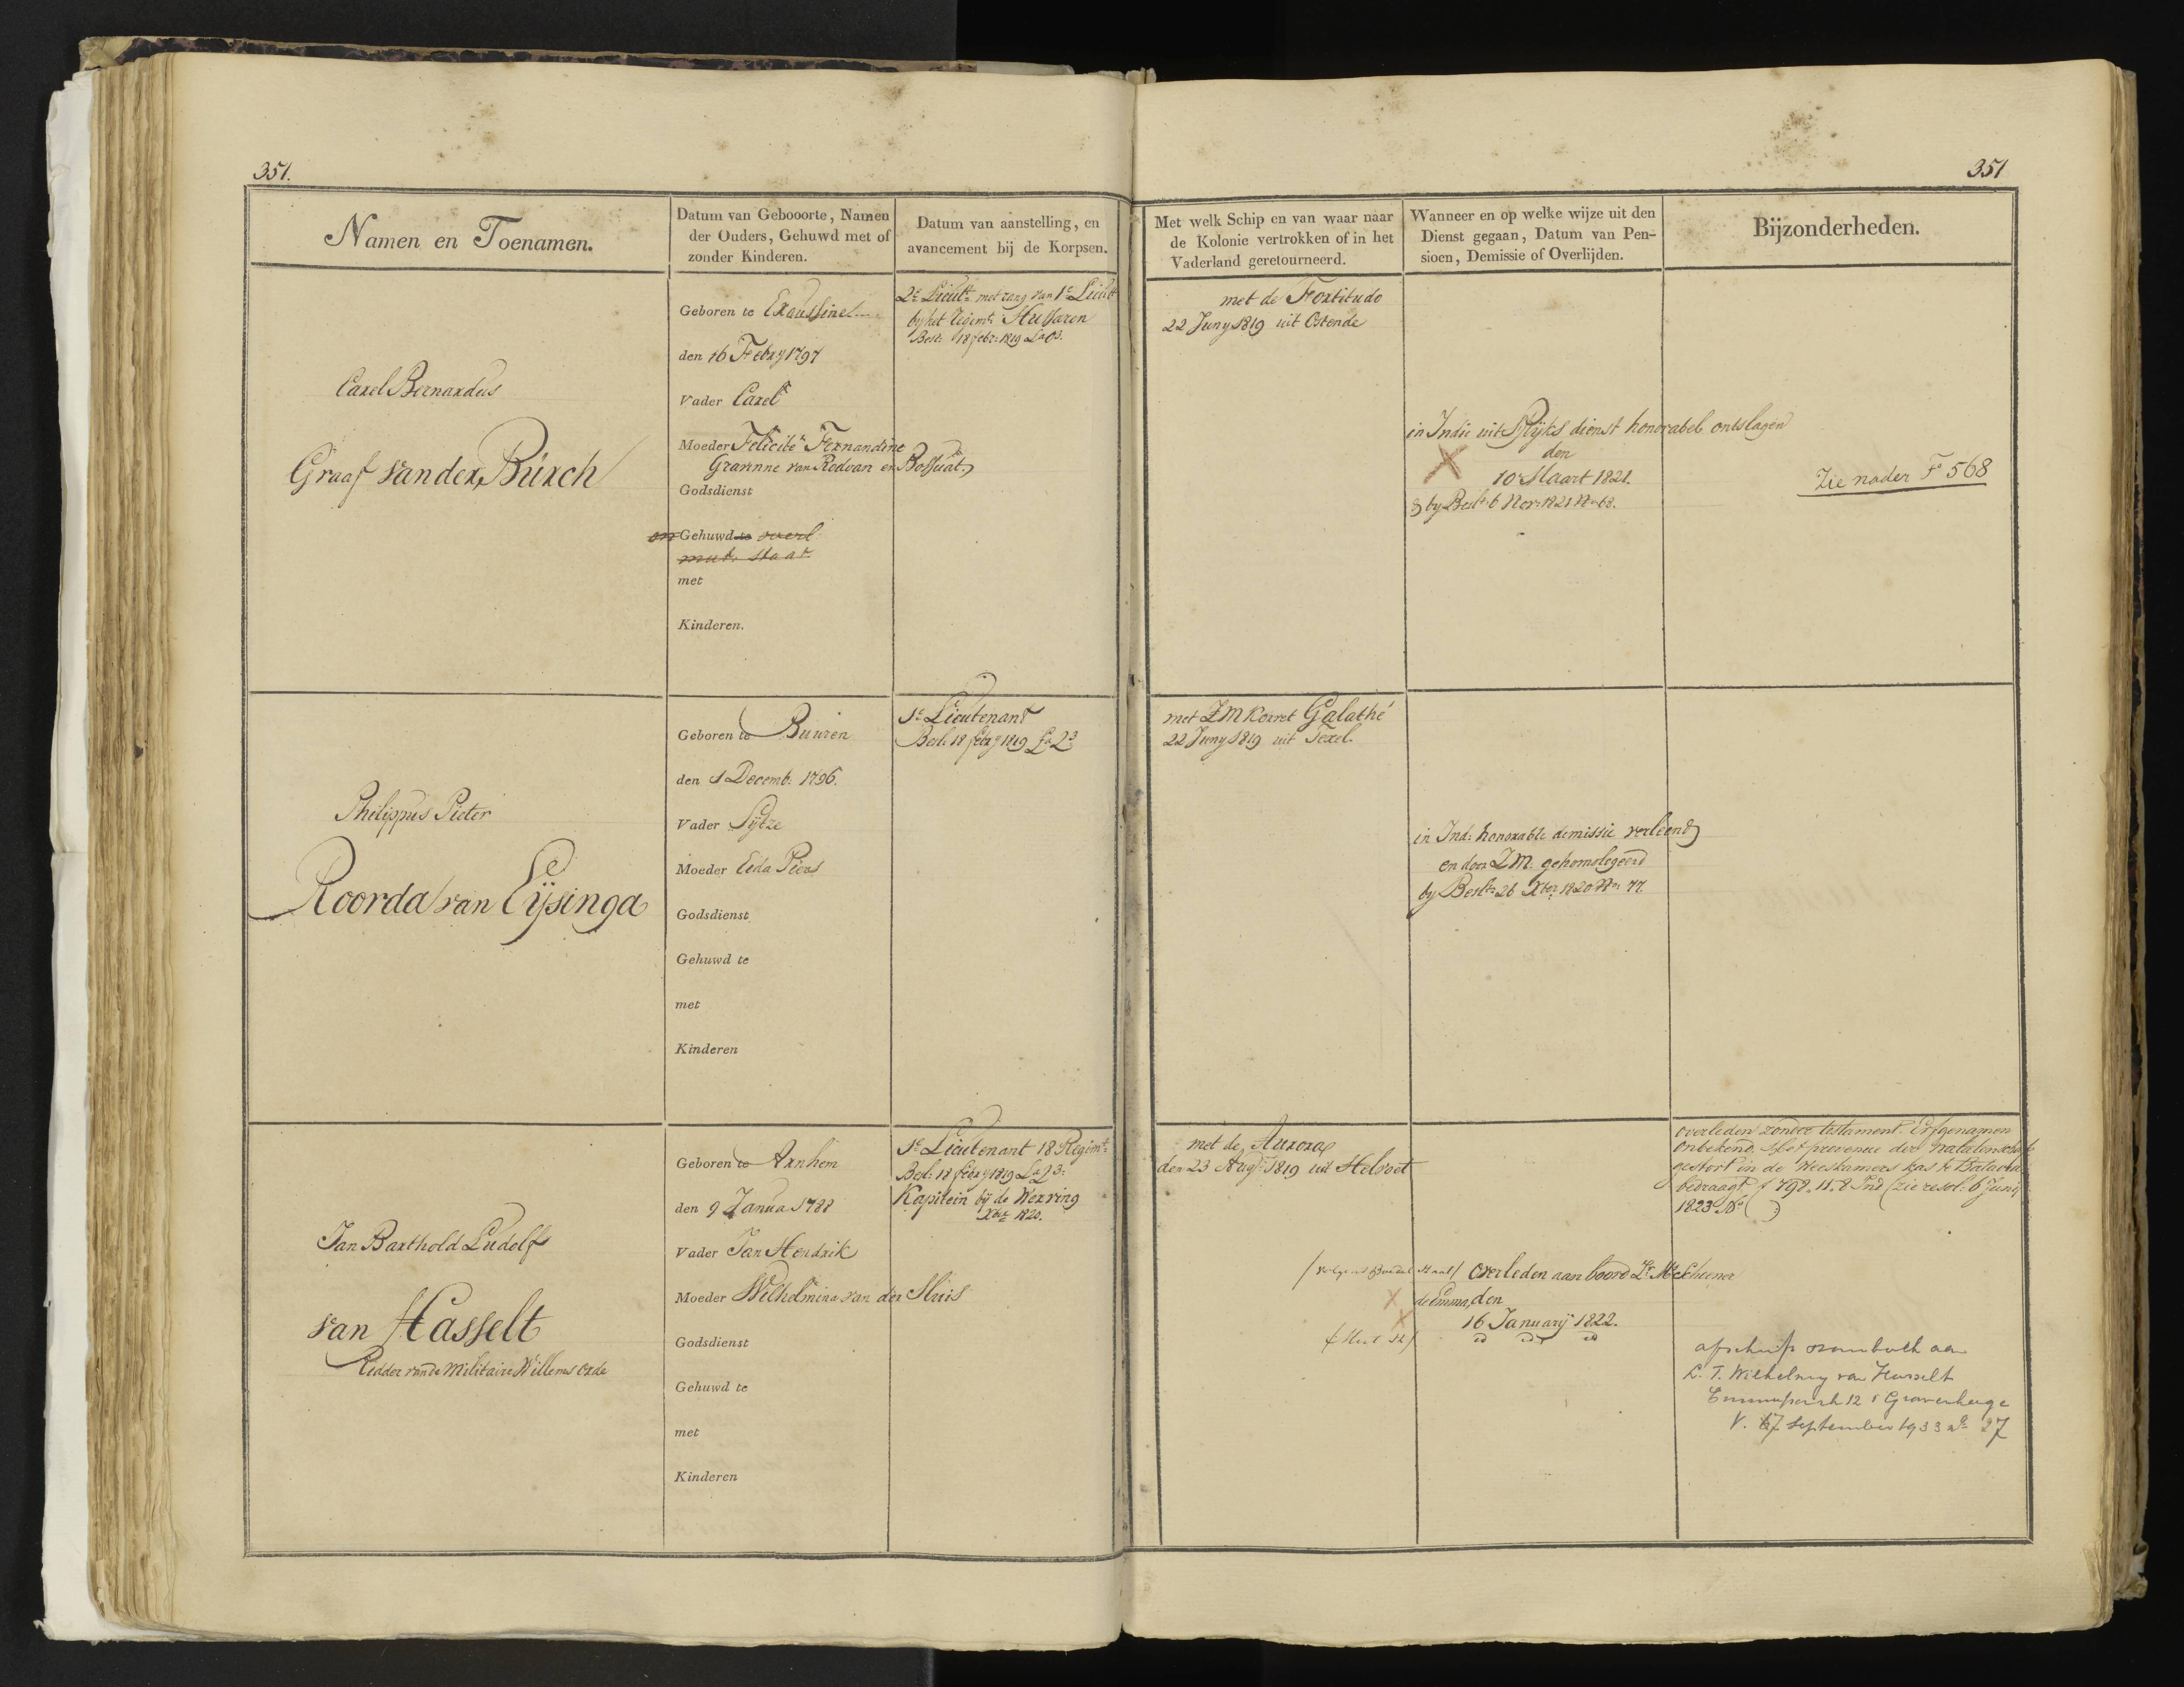 351.
351
Namen en Toenamen.
Datum van Gebooorte, Namen
der Ouders, Gehuwd met of
zonder Kinderen.
Datum van aanstelling, en
avancement bij de Korpsen.
Met welk Schip en van waar naar
de Kolonie vertrokken of in het
Vaderland geretourneerd.
Wanneer en op welke wijze uit den
Dienst gegaan, Datum van Pen-
sioen, Demissie of Overlijden.
Bijzonderheden.
Carel Bernardus
Graaf van der Burch
Geboren te Exaussine
den 16 Febry 1797
Vader Carel
Moeder Felicité Fernandine
Gravinne van Redoan en Bossuat
Godsdienst
on Gehuwd te overl
mut. staat
met
Kinderen.
2e Lieutt met rang van 1e Lieut
by het Regimt Hussaren
Besl: 18 febr: 1819 La O3.
met de Fortitudo
22 Juny 1819 uit Ostende
in Indie uit Ryks dienst honorabel ontslagen
den
10 Maart 1821.
by Beslt 6 Nov: 1821 No 68.
Zie nader Fo 568
Philippus Pieter
Roorda van Eijsinga
Geboren te Buuren
den 1 Decemb: 1796.
Vader Sytze
Moeder Eeda Piers
Godsdienst
Gehuwd te
met
Kinderen
1e Lieutenant
Besl: 18 febry 1819 La Q3
met ZM Korvet Galathé
22 Juny 1819 uit Texel.
in Ind: honorable demissie verleend
en door ZM. gehomologeerd
by Beslt 26 Xber 1820 No 77.
Jan Barthold Ludolf
van Hasselt
Ridder van de Militaire Willems orde
Geboren te Arnhem
den 9 Janua 1788
Vader Jan Hendrik
Moeder Wilhelmina van der Sluis
Godsdienst
Gehuwd te
met
Kinderen
1e Lieutenant 18 Regimt:
Besl: 18 febry 1819 La Q3:
Kapitein bij de Werving
Xber 1820.
met de Aurora
den 23 Augt 1819 uit Helvoet
/ volgens Boedel Staat / Overleden aan boord Zr Ms Schoener
de Emma, den
16 January 1822.
id id id
overleden zonder testament. Erfgenamen
onbekend. Het provenue der nalatenschap
gestort in de Weeskamers kas te Batavia
bedraagt f 798.11.8 Ind (zie resol: 6 Juny
1823 No ( )
afschrift stamboek aan
L. T. Wilhelmy van Hasselt
12 's Gravenhage
V. 27 september 1933 no 27